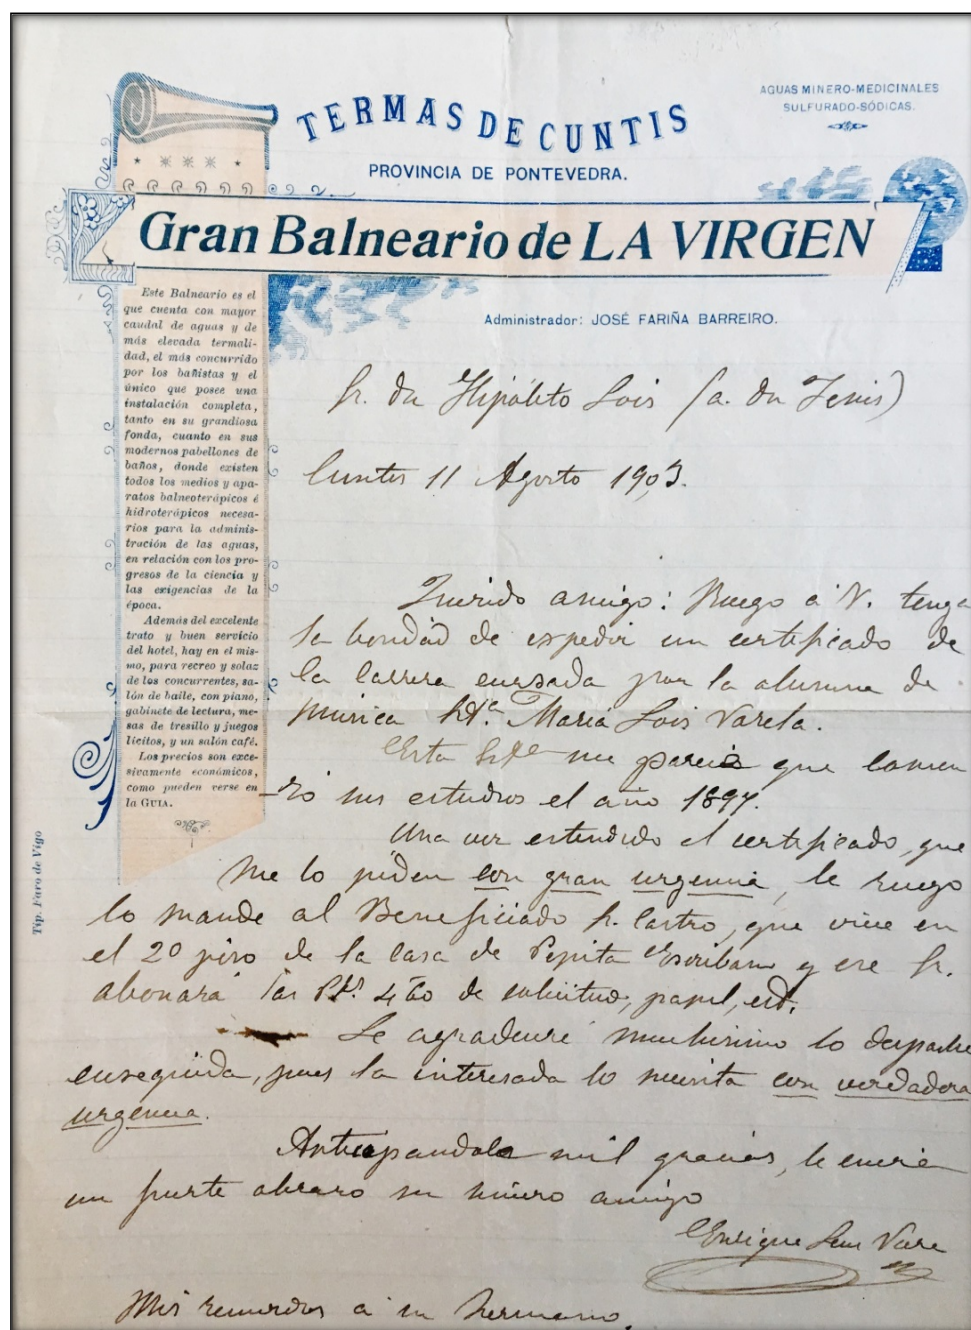 AGUAS MINERO-MEDICINALES
SULFURADO-SÓDICAS.
TERMAS DE CUNTIS
PROVINCIA DE PONTEVEDRA.
Gran Balneario de LA VIRGEN
Administrador: JOSÉ FARIÑA BARREIRO.
Este Balneario es el
que cuenta con mayor
caudal de aguas y de
más elevada termali-
dad, el más concurrido
por los bañistas y el
único que posee una
instalación completa,
tanto en su grandiosa
fonda, cuanto en sus
modernos pabellones de
baños, donde existen
todos los medios y apa-
ratos balneoterápicos é
hidroterápicos necesa-
rios para la adminis-
tración de las aguas,
en relación con los pro-
gresos de la ciencia y
las exigencias de la
época.
Además del excelente
trato y buen servicio
del hotel, hay en el mis-
mo, para recreo y solaz
de los concurrentes, sa-
lón de baile, con piano,
gabinete de lectura, me-
sas de tresillo y juegos
lícitos, y un salón café.
Los precios son exce-
sivamente económicos,
como pueden verse en
la GUIA.
Tip. Faro de Vigo
Sr. Dn Hipólito Lois
Cuntis 11 Agosto 1903.
Querido amigo: Ruego á V. tenga
la bondad de expedir un certificado de
la carrera cursada por la alumna de
música Srta. María Lois Varela.
Esta Srta me parece que comen
zó sus estudios el año 1897.
Una vez estendido el certificado, que
me lo piden con gran urgencia, le ruego
lo mande al Beneficiado Sr. Castro, que vive en
el 2º piso de la casa de Pepita Escribano y ese Sr.
abonará las Pts. de solicitud, papel, etc.
Le agradeceré muchisimo lo despache
enseguida, pues la interesada lo necesita con verdadera
urgencia.
Anticipandole mil gracias, le envia
un fuerte abrazo su sincero amigo
Enrique
Mis recuerdos á su hermano.